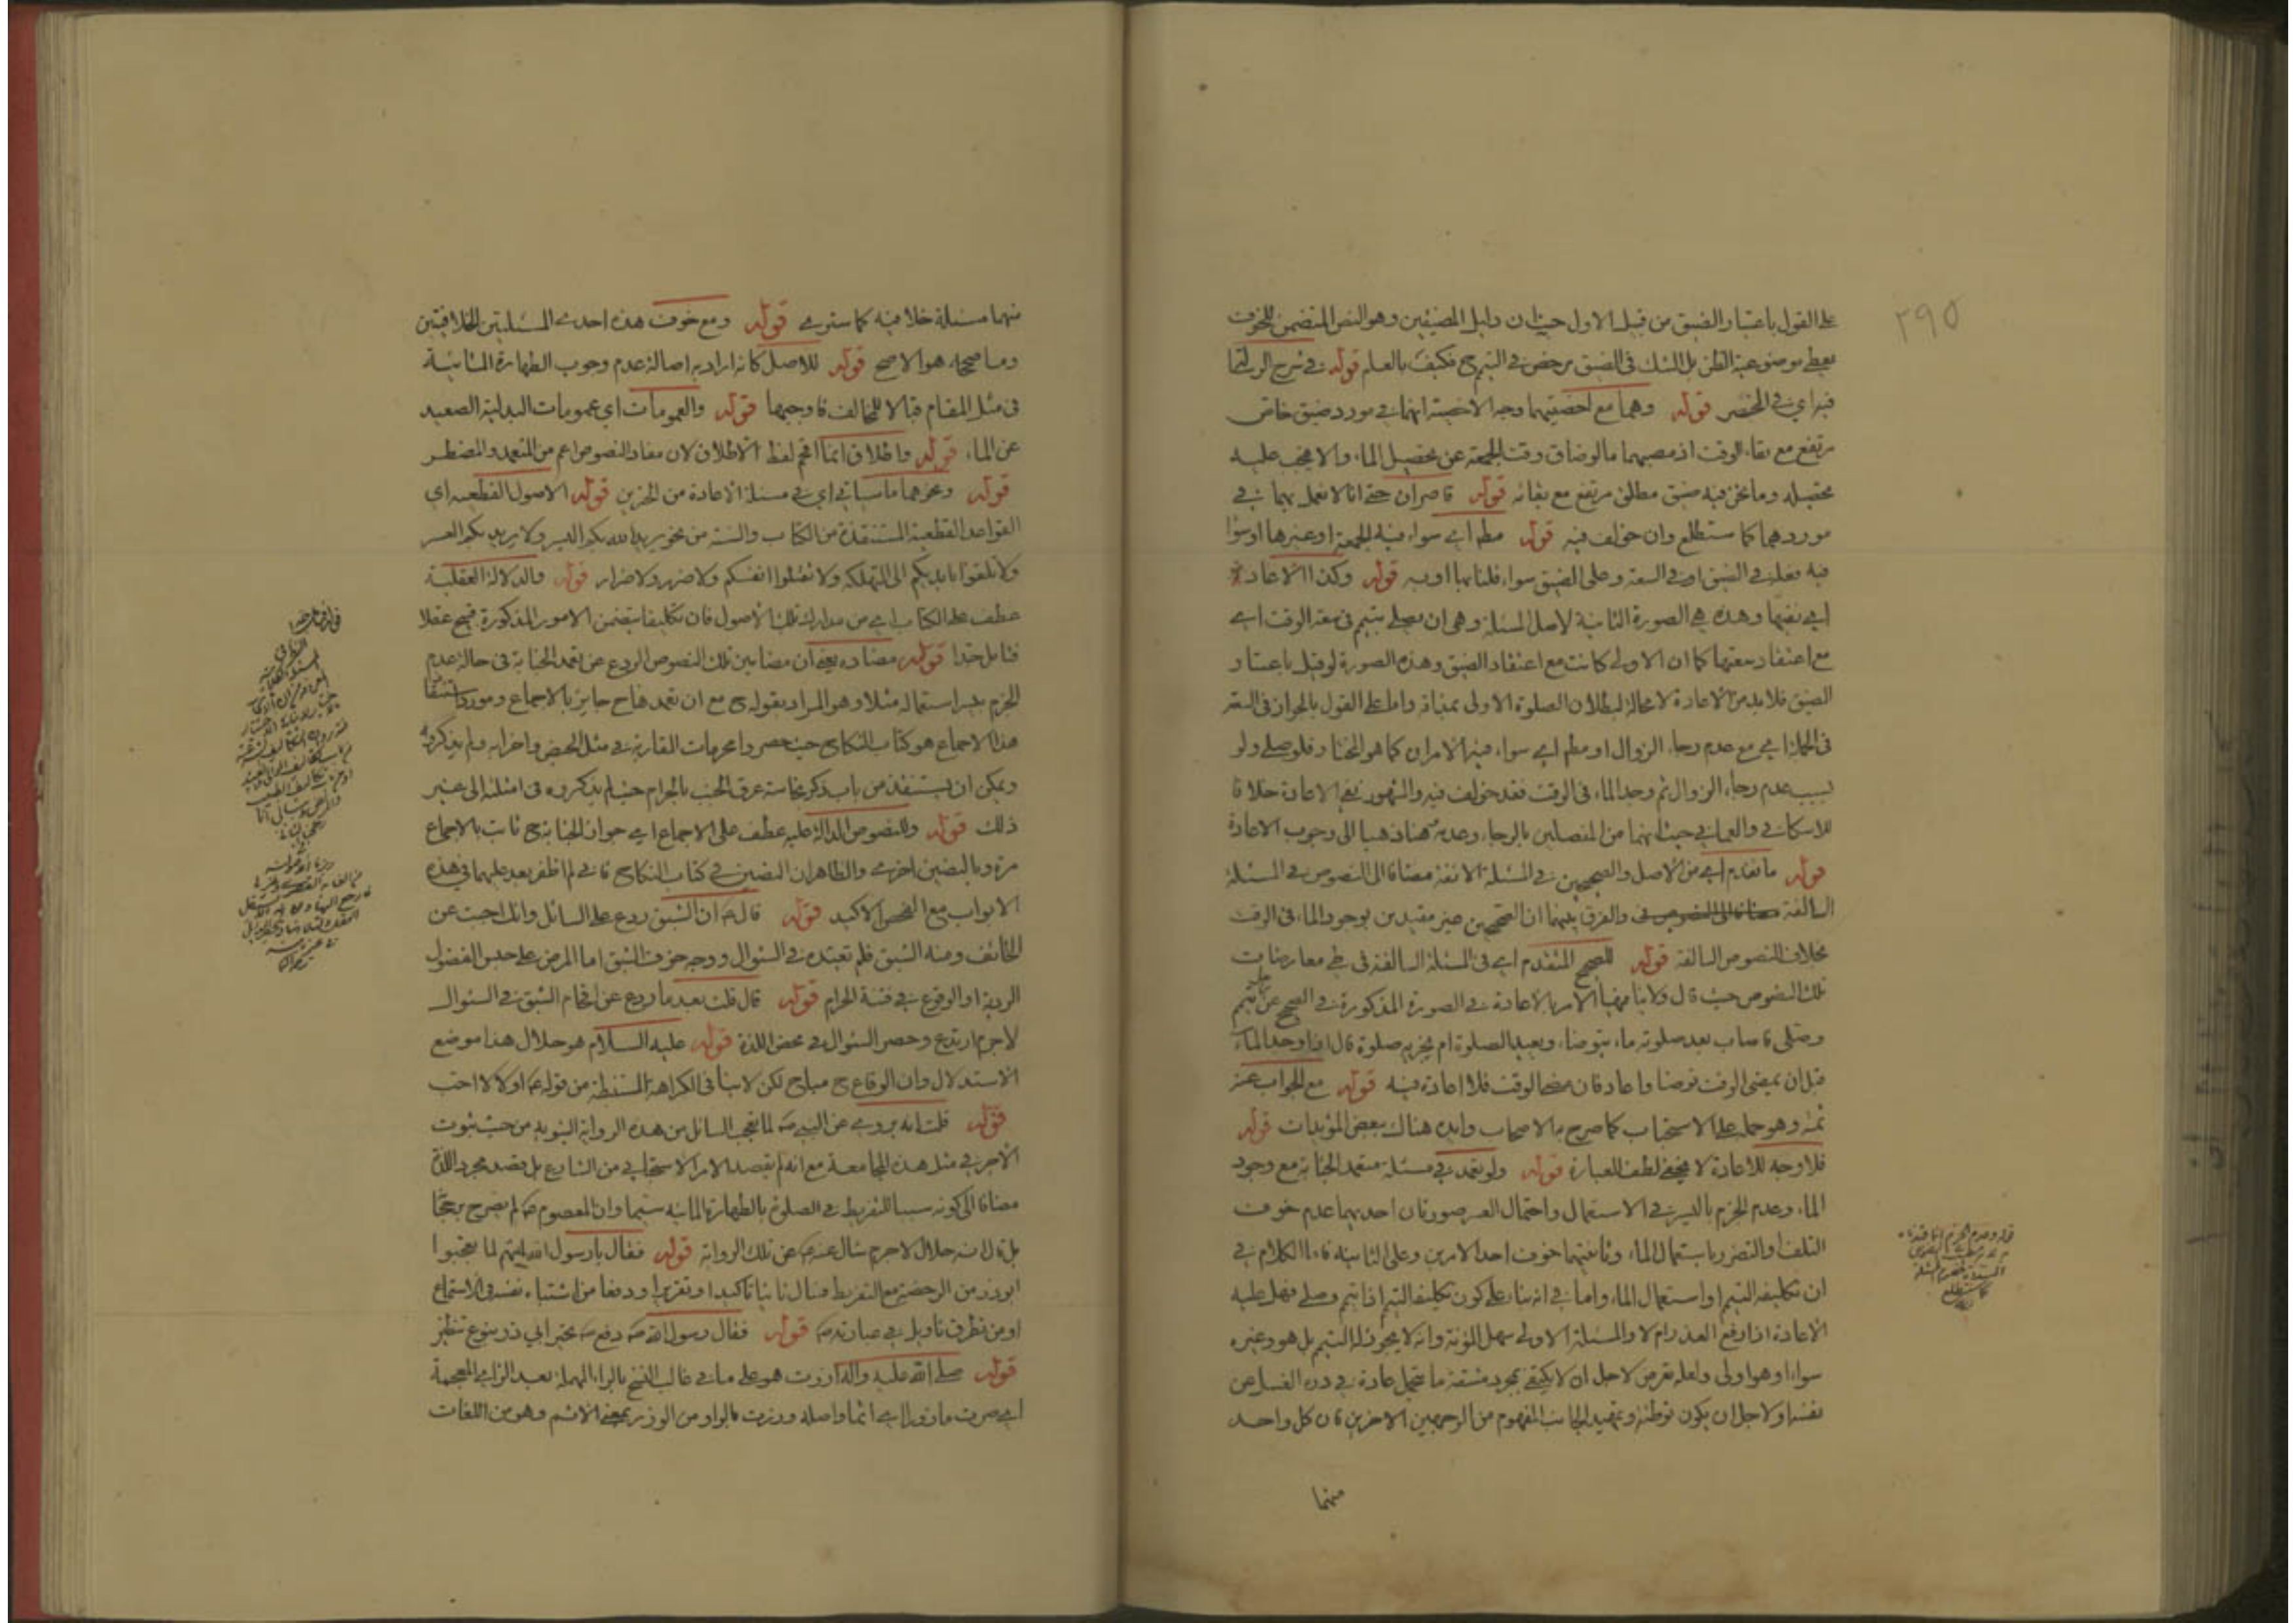 ٢٩٥
على القول باعتبار الضيق من قبيل الاول حيث ان دليل المضيقين وهو النص المتضمن للخوف
يعطى موضوعية الظن بل الشك فى الضيق مرخص فى التيمم ح فكيف بالعلم قوله فى شرح الرسالة
فيه اي فى المحضر قوله وهما مع اخصيتهما وجه الاخصية انهما فى مورد ضيق خاص
مرتفع مع بقاء الوقت اذ مصبهما ما لو ضاق وقت الجمعة عن تحصيل الماء والا فيجب عليه
تحصيله وما نحن فيه ضيق مطلق مرتفع مع بقائه قوله قاصران حتى انا لا نعمل بهما فى
موردهما كما ستطلع وان خولف فيه قوله مطم اي سواء فيه الجمعة او غيرها او سواء
فيه فعله فى الضيق او فى السعة وعلى الضيق سواء قلنا بها او به قوله وكذا الاعادة
اي نفيها وهذه هي الصورة الثانية لاصل المسئلة وهى ان يصلى بتيمم فى سعة الوقت اي
مع اعتقاد سعتها كما ان الاولى كانت مع اعتقاد الضيق وهذه الصورة لو قيل باعتبار
الضيق فلا بد من الاعادة لا محالة لبطلان الصلوة الاولى واما على القول بالجواز فى السعة
فى الجملة اي مع عدم رجاء الزوال او مطم اي سواء فيه الامران كما هو المختار فلو صلى ولو
بسبب عدم رجاء الزوال ثم وجد الماء فى الوقت فقد خولف فيه والمشهور نفى الاعادة خلافا
للاسكافى والعمانى حيث انهما من المفصلين بالرجاء وعدمه هنا فذهبا الى وجوب الاعادة
قوله ما تقدم اي من الاصل والصحيحين فى المسئلة الانفة مضافا الى النصوص فى المسئلة
السالفة والفرق بينهما ان الصحيحين غير مقيدين بوجود الماء فى الوقت
بخلاف النصوص السالفة قوله للصحيح المتقدم اي فى المسئلة السالفة فى طى معارضات
تلك النصوص حيث قال ولا ينافيها الامر بالاعادة فى الصورة المذكورة فى الصحيح عن رجل تيمم
وصلى فاصاب بعد صلوته ماء ايتوضاء ويعيد الصلوة ام يجزيه صلوته قال اذا وجد الماء
قبل ان يمضى الوقت توضا واعاد فان مضى الوقت فلا اعادة فيه قوله مع الجواب عنه
ثمه وهو حمله على الاستحباب كما صرح به الاصحاب وايده هناك ببعض المؤيدات قوله
فلا وجه للاعادة لا يخفى لطف العبارة قوله ولو تعمد فى مسئلة متعمد الجنابة مع وجود
الماء وعدم الجزم بالضرر فى الاستعمال واحتمال الضرر صورتان احديهما عدم خوف
التلف او التضرر باستعمال الماء وثانيتهما خوف احد الامرين وعلى الثانية فاما الكلام فى
ان تكليفه التيمم او استعمال الماء واما فى انه بناء على كون تكليفه التيمم اذا تيمم وصلى فهل عليه
الاعادة اذا رفع العذر ام لا والمسئلة الاولى سهل المؤنة وانه لا يجوز له التيمم بل هو وغيره
سواء او هو اولى ولعله تعرض لاجل ان لا يكتفى بمجرد مشقة ما تتحمل عادة فى درء الغسل عن
نفسه او لاجل ان يكون توطئة وتمهيد لجانب المفهوم من الوجهين الاخرين فان كل واحد
منهما
منهما مسئلة خلافية كما سترى قوله ومع خوف هذه احدى المسئلتين الخلافيتين
وما صححه هو الاصح قوله للاصل كانه اراد به اصالة عدم وجوب الطهارة المائية
فى مثل المقام قبالا للمخالف فاوجبها قوله والعمومات اي عمومات البدلية الصعيد
عن الماء قوله واطلاق انما اقحم لفظ الاطلاق لان مفاد النصوص اعم من المتعمد والمضطر
قوله ونحوهما ما سياتى اي فى مسئلة الاعادة من الخبرين قوله الاصول القطعية اي
القواعد القطعية المستنقذة من الكتاب والسنة من نحو يريد الله بكم اليسر ولا يريد بكم العسر
ولا تلقوا بايديكم الى التهلكه ولا تقتلوا انفسكم ولا ضرر ولا ضرار قوله والدلالة العقلية
عطف على الكتاب اي من مدارك تلك الاصول فان تكليفا يتضمن الامور المذكورة قبيح عقلا
فتامل جدا قوله مضاده يعنى ان مضامين تلك النصوص الردع عن تعمد الجنابة فى حالة عدم
الجزم بضرر استعماله مثلا وهو المراد بقوله ح مع ان تعمدها ح جايز بالاجماع ومورد استنقاذ
هذا الاجماع هو كتاب النكاح حيث حصروا محرمات المقاربة فى مثل الحيض واضرابه ولم يذكروه
ويمكن ان يستنقذ من باب ذكر نجاسة عرق الجنب بالحرام حيث لم يذكروه فى امثلته الى غير
ذلك قوله وللنصوص الدالة عليه عطف على الاجماع اي جواز الجنابة ح ثابت بالاجماع
مرة وبالنصين اخرى والظاهر ان النصين فى كتاب النكاح فانى لم اظفر بعد عليهما فى هذه
الابواب مع الفحص الاكيد قوله قال ع ان الشبق ردع على السائل وانك اجبت عن
الخائف ومنه الشبق فلم تعيده فى السؤال ووجه خوف الشبق اما المرض على حبس الفضول
الردية او الوقوع فى فتنة الحرام قوله قال قلت بعد ما ردع عن اقحام الشبق فى السئوال
لاجرم ارتدع وحصر السئوال فى محض اللذة قوله عليه السلام هو حلال هذا موضع
الاستدلال وان الوقاع ح مباح لكن لا ينافى الكراهة المستنبطة من قوله ع اولا لا احب
قوله قلت انه يروى عن النبى ص لما تعجب السائل من هذه الرواية النبوية من حيث ثبوت
الاجر فى مثل هذه المجامعة مع انه لم يقصد الامر الاستحبابى من الشارع بل قصد مجرد اللذة
مضافا الى كونه سببا للتفريط فى الصلوة بالطهارة المائية سيما وان المعصوم ع لم يصرح برجحانه
بل قال انه حلال لاجرم سال عنه ع عن تلك الرواية قوله فقال يا رسول الله اتيهم لما تعجبوا
ابوذر من الرخصة مع التفريط فسال ثانيا تاكيدا وتقريرا ودفعا من اشتباه نفسه فى الاستماع
او من تطرق تاويل فى عبارته ص قوله فقال رسول الله ص دفع ص تحير ابي ذر بنوع تنظير
قوله صلى الله عليه واله ازرت هو على ما فى غالب النسخ بالراء المهملة بعد الزاي المعجمة
اي صرت مازورا اي اثما واصله وزرت بالواو من الوزر بمعنى الاثم وهو من اللغات